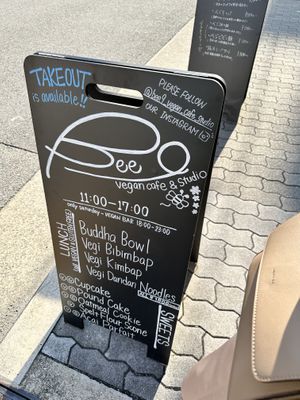 TAKEOUT
is available!!
PLEASE FOLLOW
@bee9_vegan_cafe_studio
OUR INSTAGRAM
Bee9
vegan cafe & studio
11:00-17:00
only saturday - VEGAN BAR 18:00-23:00
LUNCH
Buddha Bowl
Vegi Bibimbap
Vegi Kimbap
Vegi Dandan Noodles
Cupcake
Pound Cake
Oatmeal Cookie
Spelt Flour Scone
Acai Parfait
SWEETS